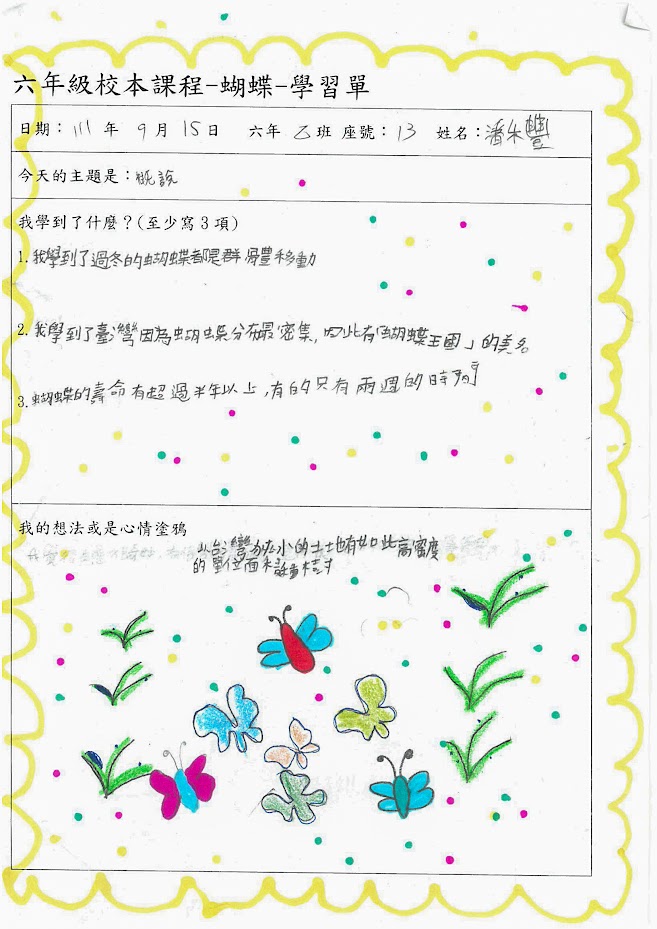 六年級校本課程-蝴蝶-學習單
日期：111 年 9 月 15 日 六年 乙 班 座號：13 姓名：潘禾豐
今天的主題是：概說
我學到了什麼？(至少寫 3 項)
1. 我學到了過冬的蝴蝶都是群體移動
2. 我學到了臺灣因為蝴蝶分布最密集，因此有「蝴蝶王國」的美名
3. 蝴蝶的壽命有超過半年以上，有的只有兩週的時間
我的想法或是心情塗鴉
以台灣狹小的土地有如此高密度
的單位面積